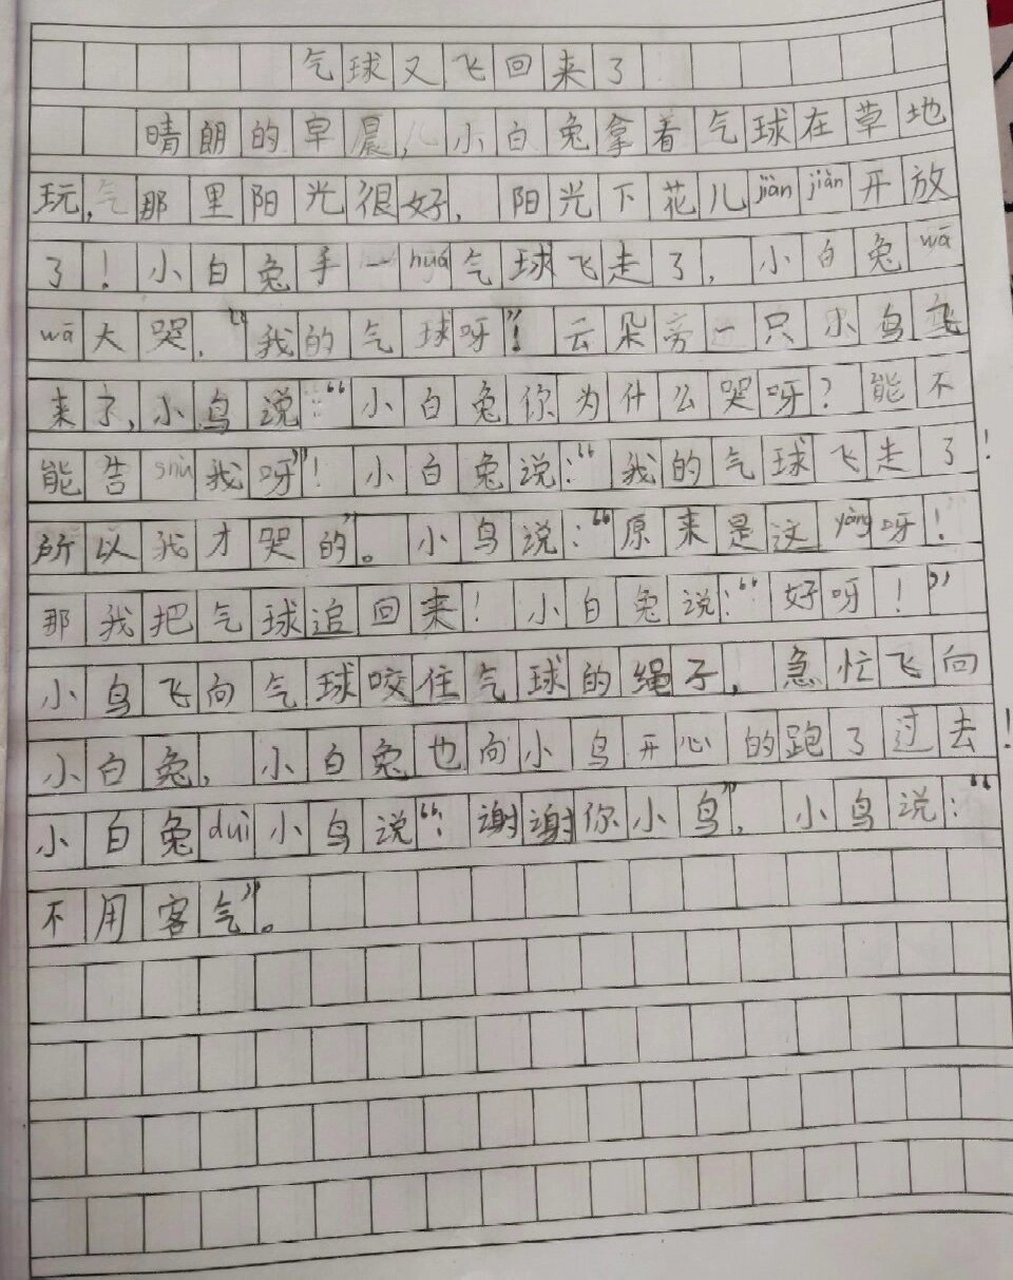 气球又飞回来了
晴朗的早晨，小白兔拿着气球在草地
玩，那里阳光很好，阳光下花儿jiàn jiàn开放
了！小白兔手一huá气球飞走了，小白兔wā
wā大哭，“我的气球呀”！云朵旁一只小鸟飞
来了，小鸟说：“小白兔你为什么哭呀？能不
能告sù我呀”！小白兔说：“我的气球飞走了！
所以我才哭的”。小鸟说：“原来是这yàng呀！
那我把气球追回来！小白兔说：“好呀！”
小鸟飞向气球咬住气球的绳子，急忙飞向
小白兔，小白兔也向小鸟开心的跑了过去！
小白兔duì小鸟说“：谢谢你小鸟”，小鸟说：“
不用客气”。